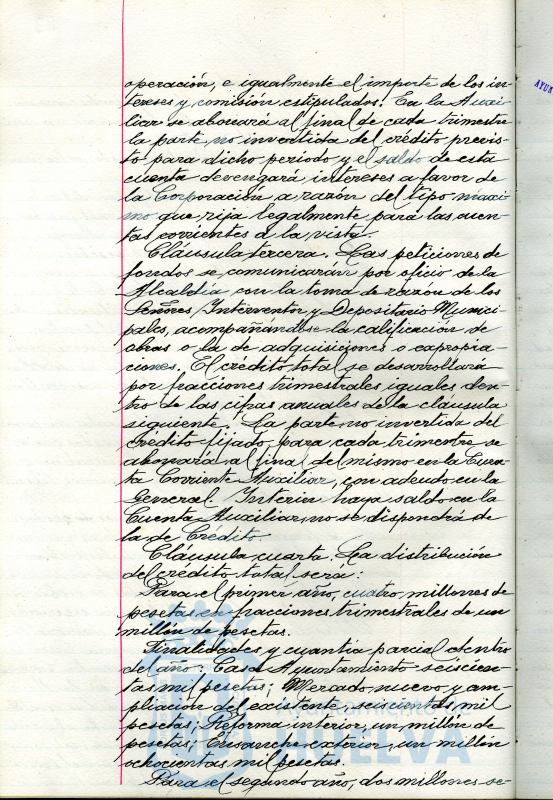 operación, e igualmente el importe de los in-
tereses y comisión estipulados. En la Auxi-
liar se abonará al final de cada trimestre
la parte no invertida del crédito previs-
to para dicho periodo y el saldo de esta
cuenta devengará intereses a favor de
la Corporación a razón del tipo máxi-
mo que rija legalmente para las cuen-
tas corrientes a la vista.
Cláusula tercera. Las peticiones de
fondos se comunicarán por oficio de la
Alcaldía con la toma de razón de los
Señores Interventor y Depositario Munici-
pales, acompañándose la calificación de
obras o la de adquisiciones o expropia-
ciones. El crédito total se desarrollará
por fracciones trimestrales iguales den-
tro de las cifras anuales de la cláusula
siguiente. La parte no invertida del
crédito fijado para cada trimestre se
abonará al final del mismo en la Cuen-
ta Corriente Auxiliar, con adeudo en la
General. Interin haya saldo en la
Cuenta Auxiliar, no se dispondrá de
la de Crédito.
Cláusula cuarta. La distribución
del crédito total será:
Para el primer año, cuatro millones de
pesetas en fracciones trimestrales de un
millón de pesetas.
Finalidades y cuantía parcial dentro
del año: Casa Ayuntamiento seiscien-
tas mil pesetas; Mercado nuevo y am-
pliación del existente, seiscientas mil
pesetas; Reforma interior, un millón de
pesetas; Ensanche exterior, un millón
ochocientas mil pesetas.
Para el segundo año, dos millones se-
AYUN
HUELVA